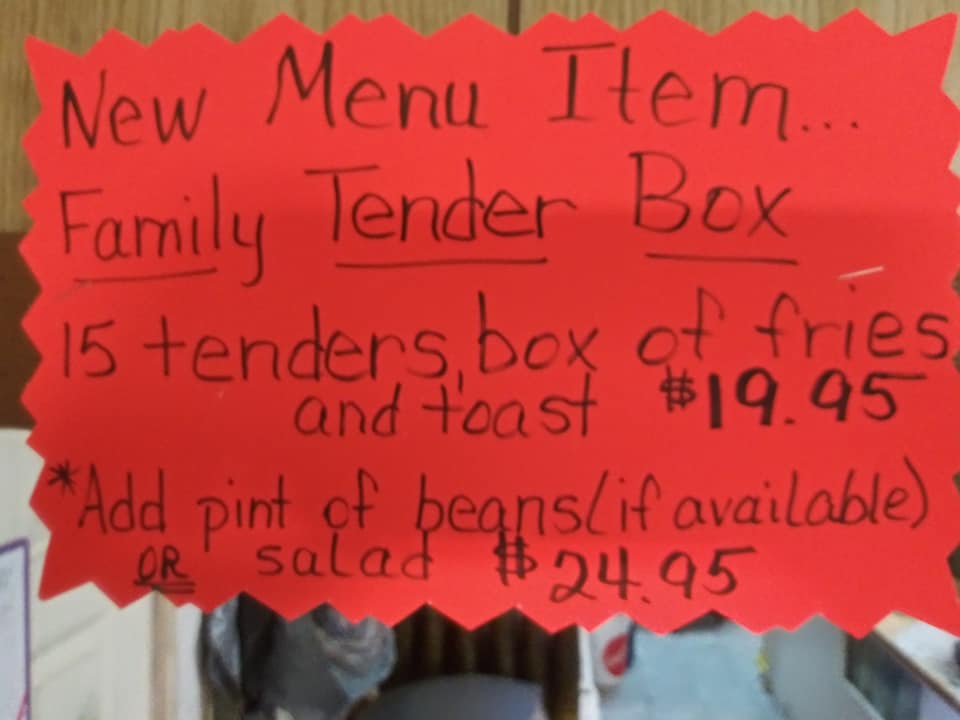 New Menu Item...
Family Tender Box
15 tenders, box of fries
and toast $19.95
*Add pint of beans (if available)
OR salad $24.95